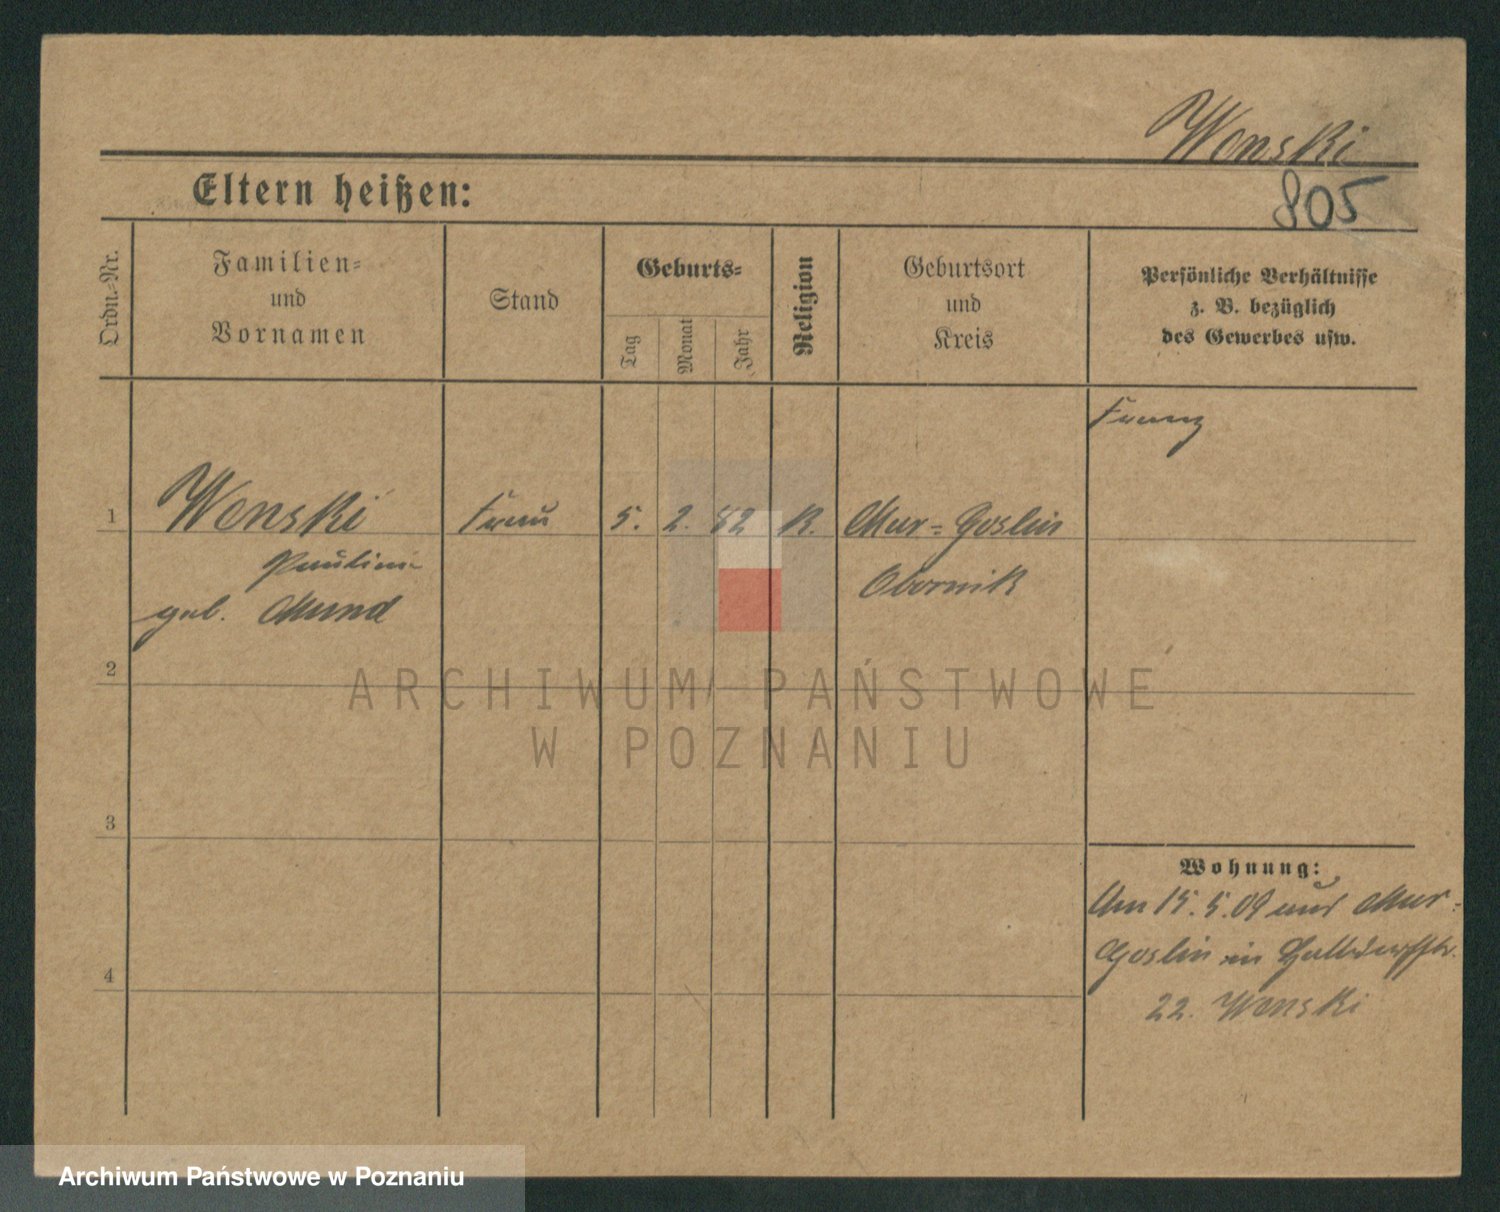 Wonski
805
Eltern heißen:
Ordn.-Nr.
Familien-
und
Vornamen
Stand
Geburts-
Tag
Monat
Jahr
Religion
Geburtsort
und
Kreis
Persönliche Verhältnisse
z. B. bezüglich
des Gewerbes usw.
Franz
1 Wonski Frau 5. 2. 82 K. Mur-Goslin
Pauline Obornik
geb. Mund
2
ARCHIWUM PAŃSTWOWE
W POZNANIU
3
Wohnung:
Am 15.5.09 aus Mur-
Goslin in
4
22. Wonski
Archiwum Państwowe w Poznaniu